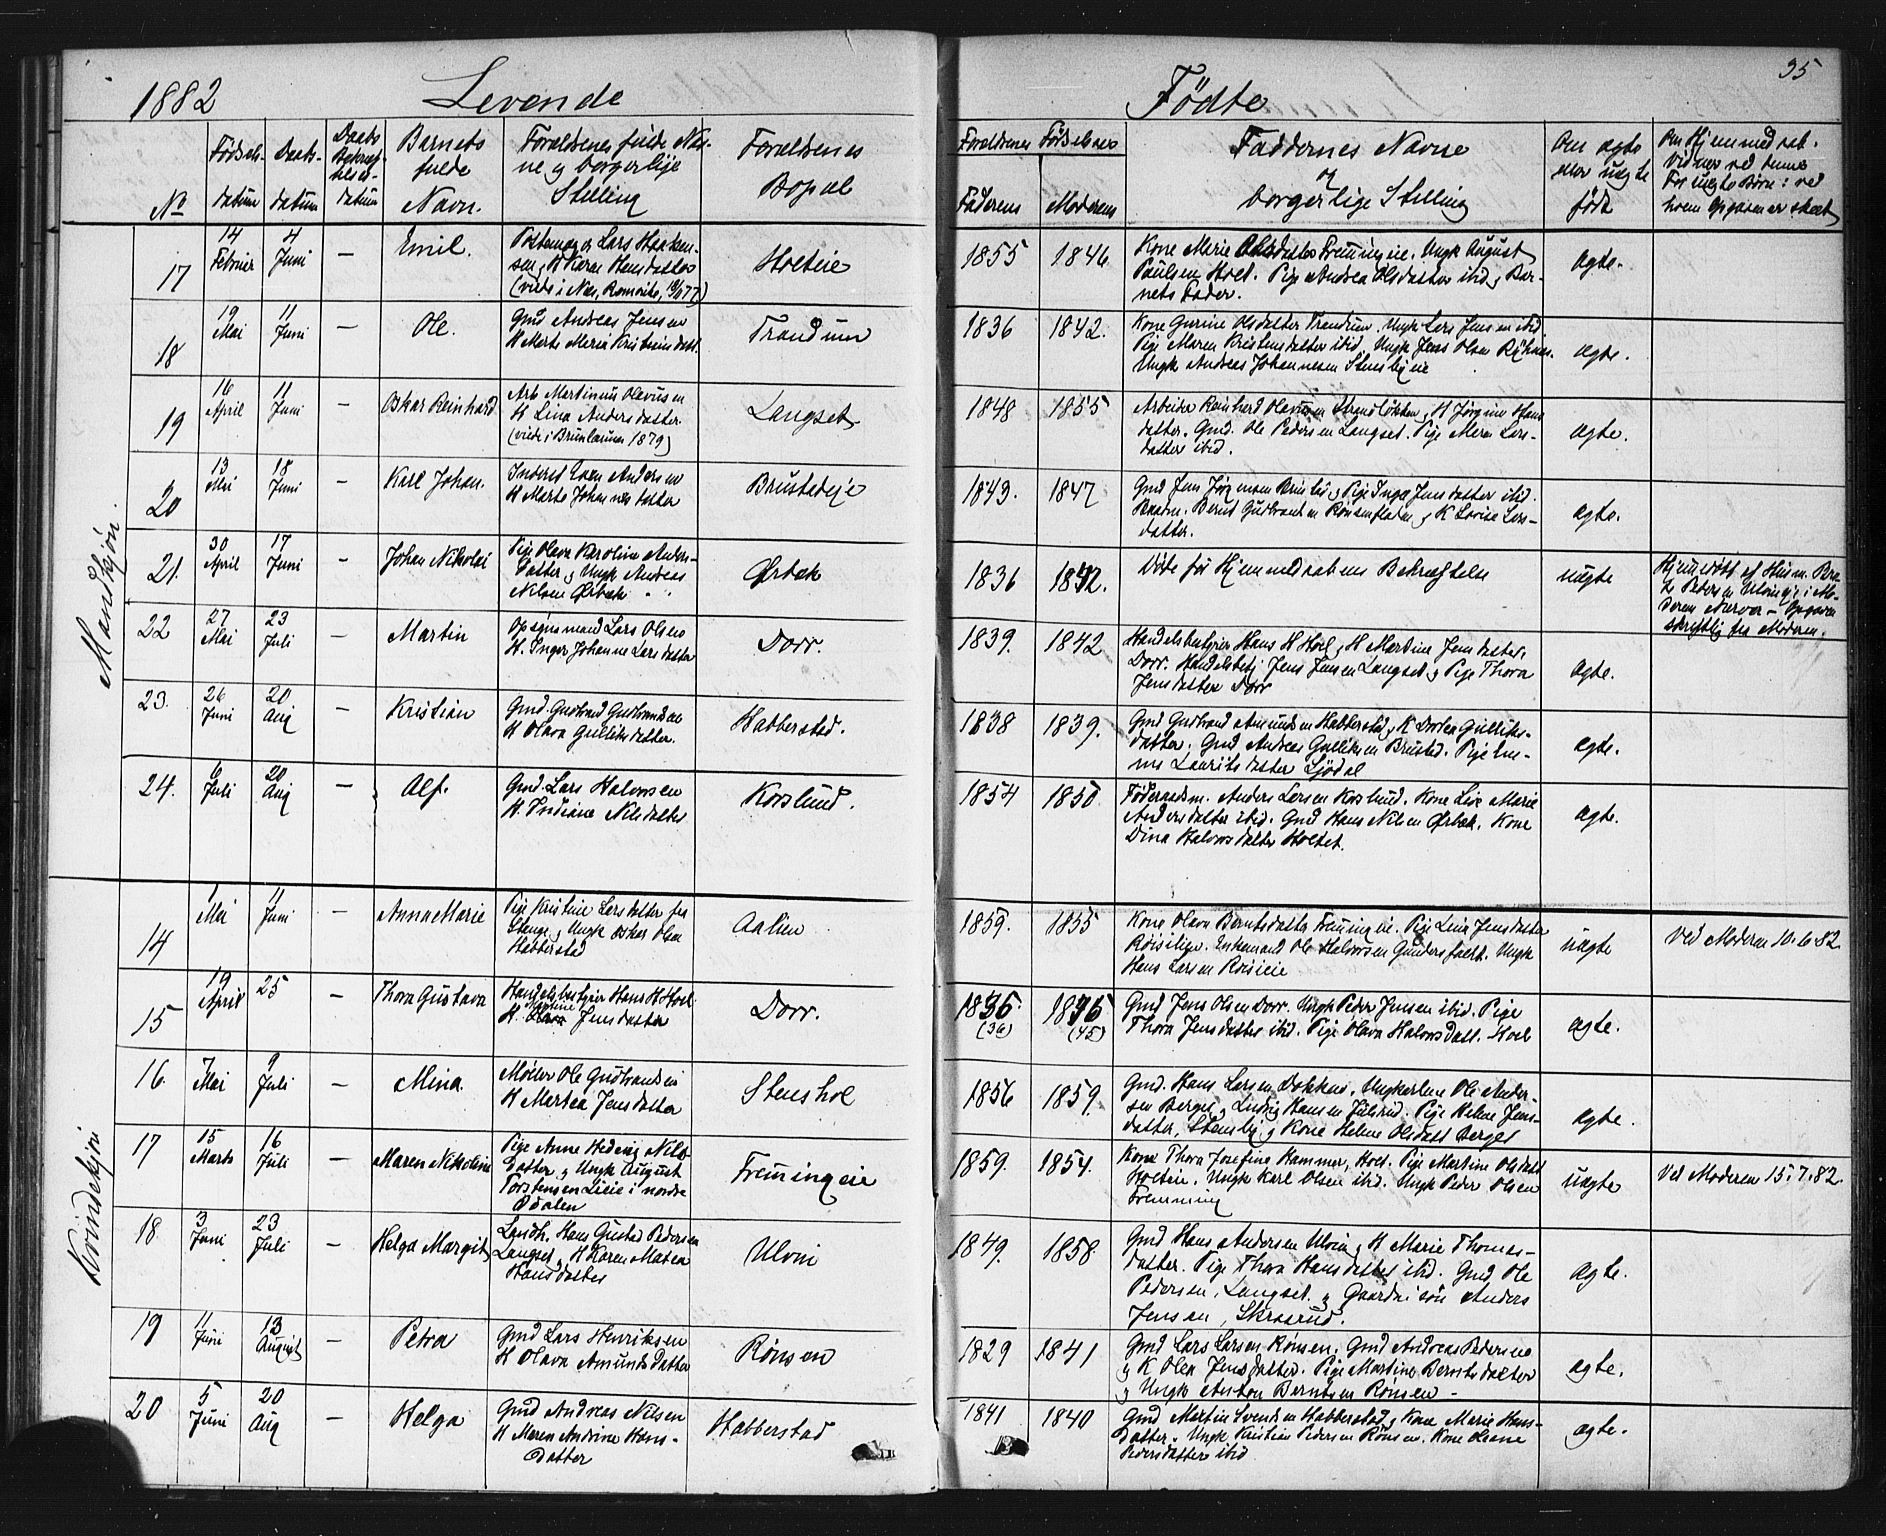 1882 Levende Fødte 35
No
Fødsels-datum
Daabs-datum
Daabs Bekræftelses-datum
Barnets fulde Navn.
Forældrenes fulde Navne og borgerlige Stilling
Forældrenes Bopæl
Forældrenes Fødselsaar
Faderens
Moderens
Faddernes Navne og borgerlige Stilling
Om ægte eller uægte født
Mandkjøn.
17
14 Februar
4 Juni
—
Emil.
Lars Haaken-
sen og K Karen Hansdatter
(viede i Næs, Romerike,
Holteie
1855
1846
Kone Marie Olsdatter Fremmingeie. Ungk August
Paulsen Hoel. Pige Andrea Olsdatter ibid og Bar-
nets Fader.
ægte.
18
19 Mai
11 Juni
—
Ole.
Gmd Andreas Jensen
K Marte Maria Kristiansdatt.
Trandum
1836
1842.
Kone Gurine Olsdatter Trandum. Ungk Lars Jensen ibid
Pige Maren Kristensdatter ibid. Ungk Jens Olsen
Ungk Andreas Johannesen Stensbyeie
ægte.
19
16 April
11 Juni
—
Oskar Reinhard
Arb Martinius Olavusen
K Lina Andersdatter.
(viede i Brunlanæs 1879)
Langset
1848
1855
Arbeider Reinhard Olavusen Strandløkken og K Jørgine Hans
datter. Gmd. Ole Pedersen Langset. Pige Maren Lars-
datter ibid.
ægte.
20
13 Mai
18 Juni
—
Karl Johan.
Inderst Even Andersen
K Marte Johannesdatter
Brustadeje
1843.
1847
Gmd Jens Jørgensen og Pige Inger Jensdatter ibid.
Bernt Gudbrandsen Rønsenfladen og K Lovise Lars-
datter.
ægte.
21.
30 April
17 Juni
—
Johan Nikolai
Pige Olava Karoline Anders-
datter og Ungk Andreas
Nilsen Ørbæk
Ørbæk
1836
1842.
Døde før Hjemmedaabens Bekræftelse
uægte
Hjemmedøbt af Husm.
Pedersen i Mo-
derens Nærvær - Opgaven
skriftlig fra Moderen.
22
27 Mai
23 Juli
—
Martin
Opsynsmand Lars Olsen
K. Inger Johanne Larsdatter
Dorr.
1839.
1842
Handelsbestyrer Hans H Hoel og K Martine Jensdatter,
Dorr. Handelsbetj. Jens Jensen Langset og Pige Thora
Jensdatter Dorr
ægte.
23.
26 Juni
20 Aug
—
Kristian
Gmd. Gudbrand Gudbrandsen
K Olava Gulliksdatter.
Habberstad.
1838
1839.
Gmd Gudbrand Amundsen Habberstad og K Dortea Gulliks-
datter. Gmd Andreas Gulliksen Brustad. Pige Em-
ma Lauritsdatter Sjødal
ægte.
24.
6 Juli
20 Aug
—
Alf.
Gmd. Lars Halvorsen
K. Indiane Nilsdatter
Korslund.
1854
1850
Føderaadsm. Anders Larsen Korslund. Kone Lise Marie
Andersdatter ibid. Gmd Hans Nilsen Ørbæk. Kone
Dina Halvorsdatter Holtet.
ægte.
Kvindekjøn
14
1 Mai
11 Juni
—
Anna Marie
Pige Kristine Larsdatter fra
Stange og Ungk Oskar Olsen
Habberstad
Aalien
1859.
1855
Kone Olava Berntsdatter Fremmingeie. Pige Lina Jensdatter
Enkemand Ole Halvorsen Ungk
Hans Larsen Røisieie
uægte
Ved Moderen 10.6.82
15
19 April
25
—
Thora Gustava
Handelsbestyrer Hans H Hoel
K. Martine Jensdatter
Dorr.
1836
(36)
(45)
Gmd Jens Olsen Dorr. Ungk Peder Jensen ibid. Pige
Thora Jensdatter ibid. Pige Olava Halvorsdatt. Hoel
ægte.
16.
7 Mai
9 Juli
—
Mina.
Møller Ole Gudbrandsen
K Martea Jensdatter
Stenshol
1856
1859.
Gmd. Hans Larsen Dokken. Ungkarlene Ole Ander-
sen Berget og Ludvig Hansen Julsrud. Pige Helene Jens-
datter, Stensby og Kone Helene Olsdatt Berget
ægte.
17
15 Marts
16 Juli
—
Maren Nikoline
Pige Anne Hedevig Nils-
datter og Ungk August
Torstensen Lieie i nordre
Odalen
Fremmingeie
1859.
1854.
Kone Thora Josefine Hammer, Hoel. Pige Martine Olsdatt
Holteie. Ungk Karl Olsen ibid. Ungk Peder Olsen
Fremming
uægte
Ved Moderen 15.7.82.
18
3 Juni
23 Juli
—
Helga Margit
Landh. Hans Gustav Pedersen
Langset, og K Karen Matea
Hansdatter
Ulvin
1849.
1858
Gmd Hans Andersen Ulvin og K Marie Thomas-
datter. Pige Thora Hansdatter ibid. Gmd. Ole
Pedersen, Langset. og Gaardmsøn Anders
Jensen, Skraarud.
ægte.
19
11 Juni
13 August
—
Petra
Gmd Lars Henriksen
K Olava Amundsdatter
Rønsen
1829
1841
Gmd Lars Larsen Rønsen. Gmd Andreas Pedersen
og K Olea Jensdatter. Pige Martine Berntsdatter
og Ungk Anton Berntsen Rønsen -
ægte.
20
5 Juni
20 Aug
—
Helga
Gmd Andreas Nilsen
K Maren Andrine Hans-
datter
Habberstad
1841
1840
Gmd Martin Svendsen Habberstad og Kone Marie Hans-
datter. Ungk Kristian Pedersen Rønsen. Kone Oleane
Pedersdatter ibid
ægte.